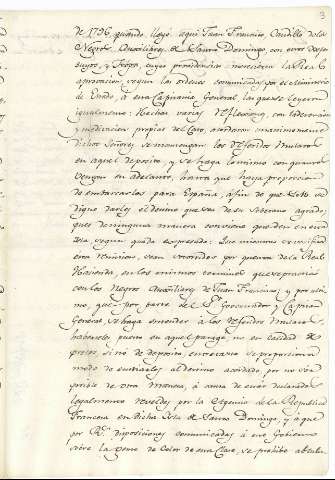 3
de 1796, quando llegó aqui Juan Francisco Caudillo de los
Negros Auxiliares de Santo Domingo, con otros de su
y Tropa, cuyas providencias merecieron la Real
aprovacion, segun las ordenes comunicadas por el Ministerio
de Estado, à esta Capitania General, las que se leyeron
igualmente: Hechas varias reflexiones, con la
y meditacion propias del Caso, acordaron unanimemente
dichos Señores, se mantengan los Mulatos
en aquel deposito, y se haga lo mismo con quantos
vengan en adelante, hasta que haya proporcion
de embarcarlos para España, à fin de que S. M. se
digne darles el destino que sea de su Soberano agrado,
pues de ninguna manera conviene queden en esta
Isla segun queda expresado: Que mientras se verifica
esta remision, sean socorridos por quenta de la Real
Hacienda, en los mismos terminos que se practicó
con los Negros Auxiliares de Juan Francisco; y por ulti-
mo, que por parte del Sr. Governador y Capitan
General, se haga entender à los Mulatos,
haberlos puesto en aquel parage, no en calidad de
presos, si nó de deposito, entretanto se proporciona
modo de enviarlos al destino acordado, por no ser
posible de otra manera, à causa de estar declarados
legalmente rebeldes, por la Agencia de la Republica
Francesa en dicha Isla de Santo Domingo, y à que
por Rs. disposiciones comunicadas à este Gobierno
sobre la gente de Color de esta Clase, se prohibe absolu-